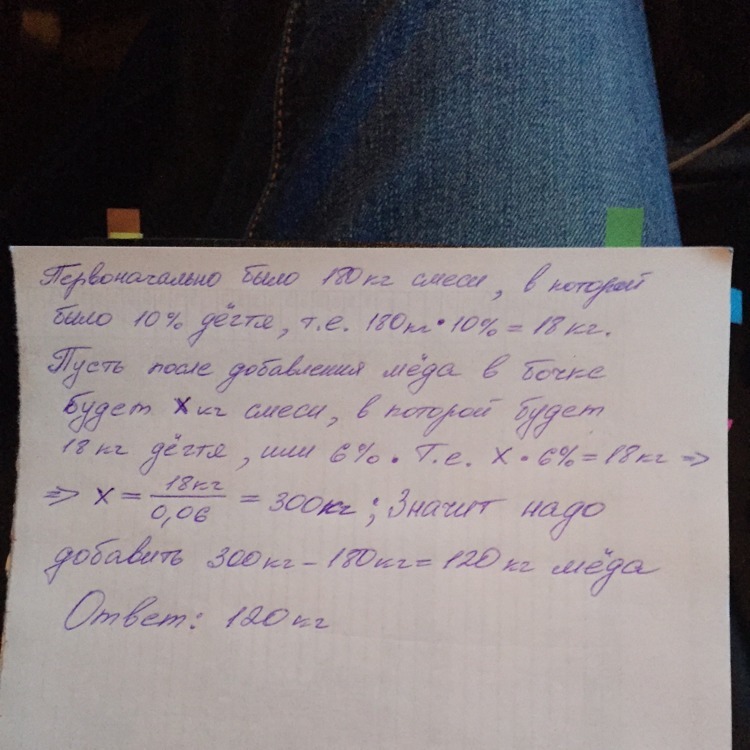 Первоначально было 180 кг смеси, в которой
было 10% дёгтя, т.е. 180кг • 10% = 18 кг.
Пусть после добавления мёда в бочке
будет x кг смеси, в которой будет
18 кг дёгтя, или 6%. Т.е. x • 6% = 18 кг ⇒
⇒ x = 18кг / 0,06 = 300кг; Значит надо
добавить 300кг – 180кг = 120 кг мёда
Ответ: 120 кг